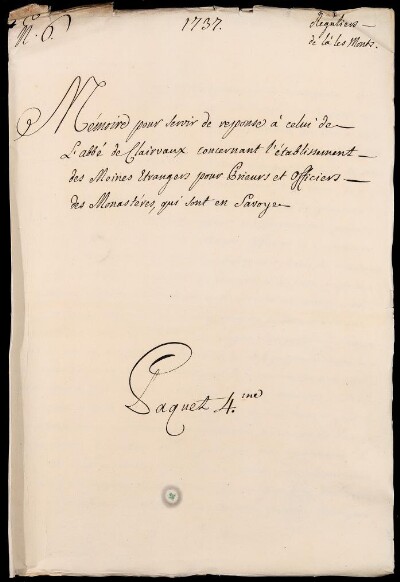 N.º 6.
1737.
Reguliers
de là les Monts.
Mémoire pour servir de reponse à celui de
L'abbé de Clairvaux concernant l'établissement
des Moines Etrangers pour Prieurs et Officiers
des Monastéres, qui sont en Savoye
Paquet 4.me